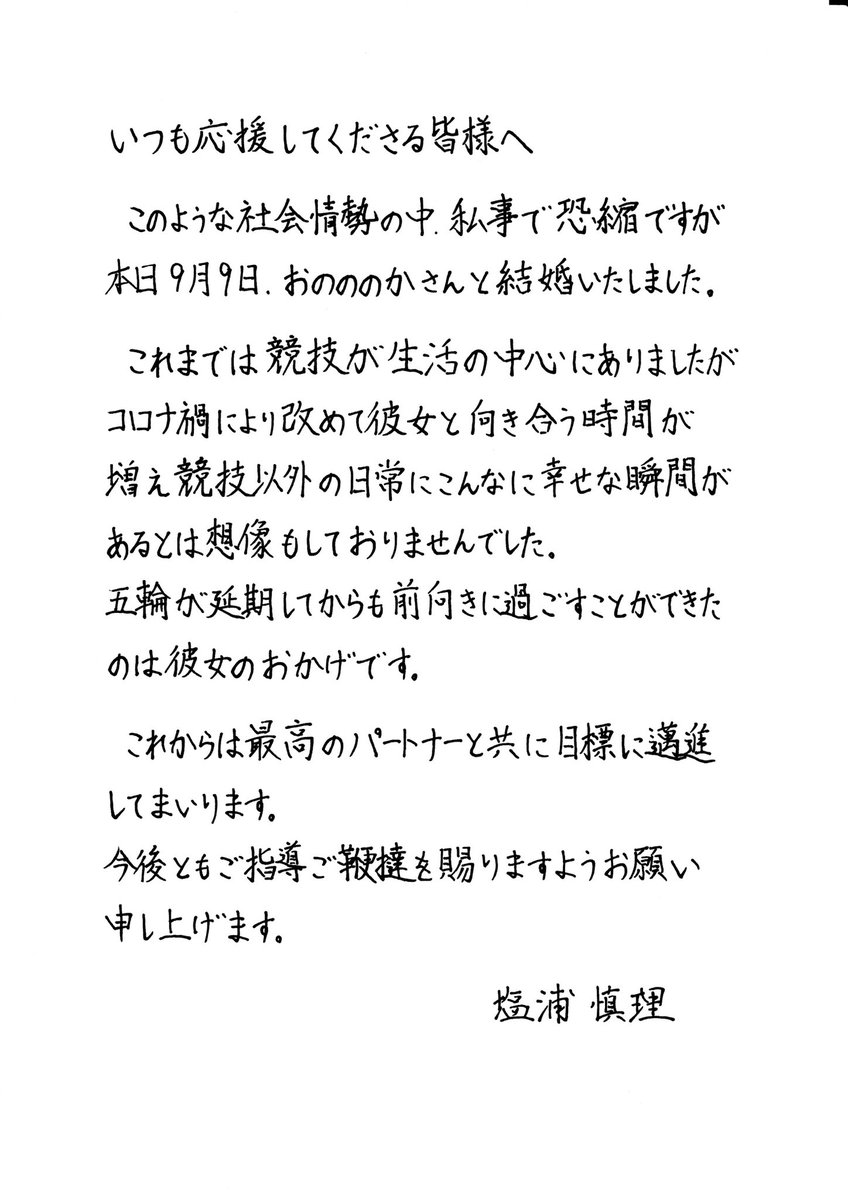 いつも応援してくださる皆様へ
このような社会情勢の中、私事で恐縮ですが
本日9月9日、おのののかさんと結婚いたしました。
これまでは競技が生活の中心にありましたが
コロナ禍により改めて彼女と向き合う時間が
増え競技以外の日常にこんなに幸せな瞬間が
あるとは想像もしておりませんでした。
五輪が延期してからも前向きに過ごすことができた
のは彼女のおかげです。
これからは最高のパートナーと共に目標に邁進
してまいります。
今後ともご指導ご鞭撻を賜りますようお願い
申し上げます。
塩浦 慎理